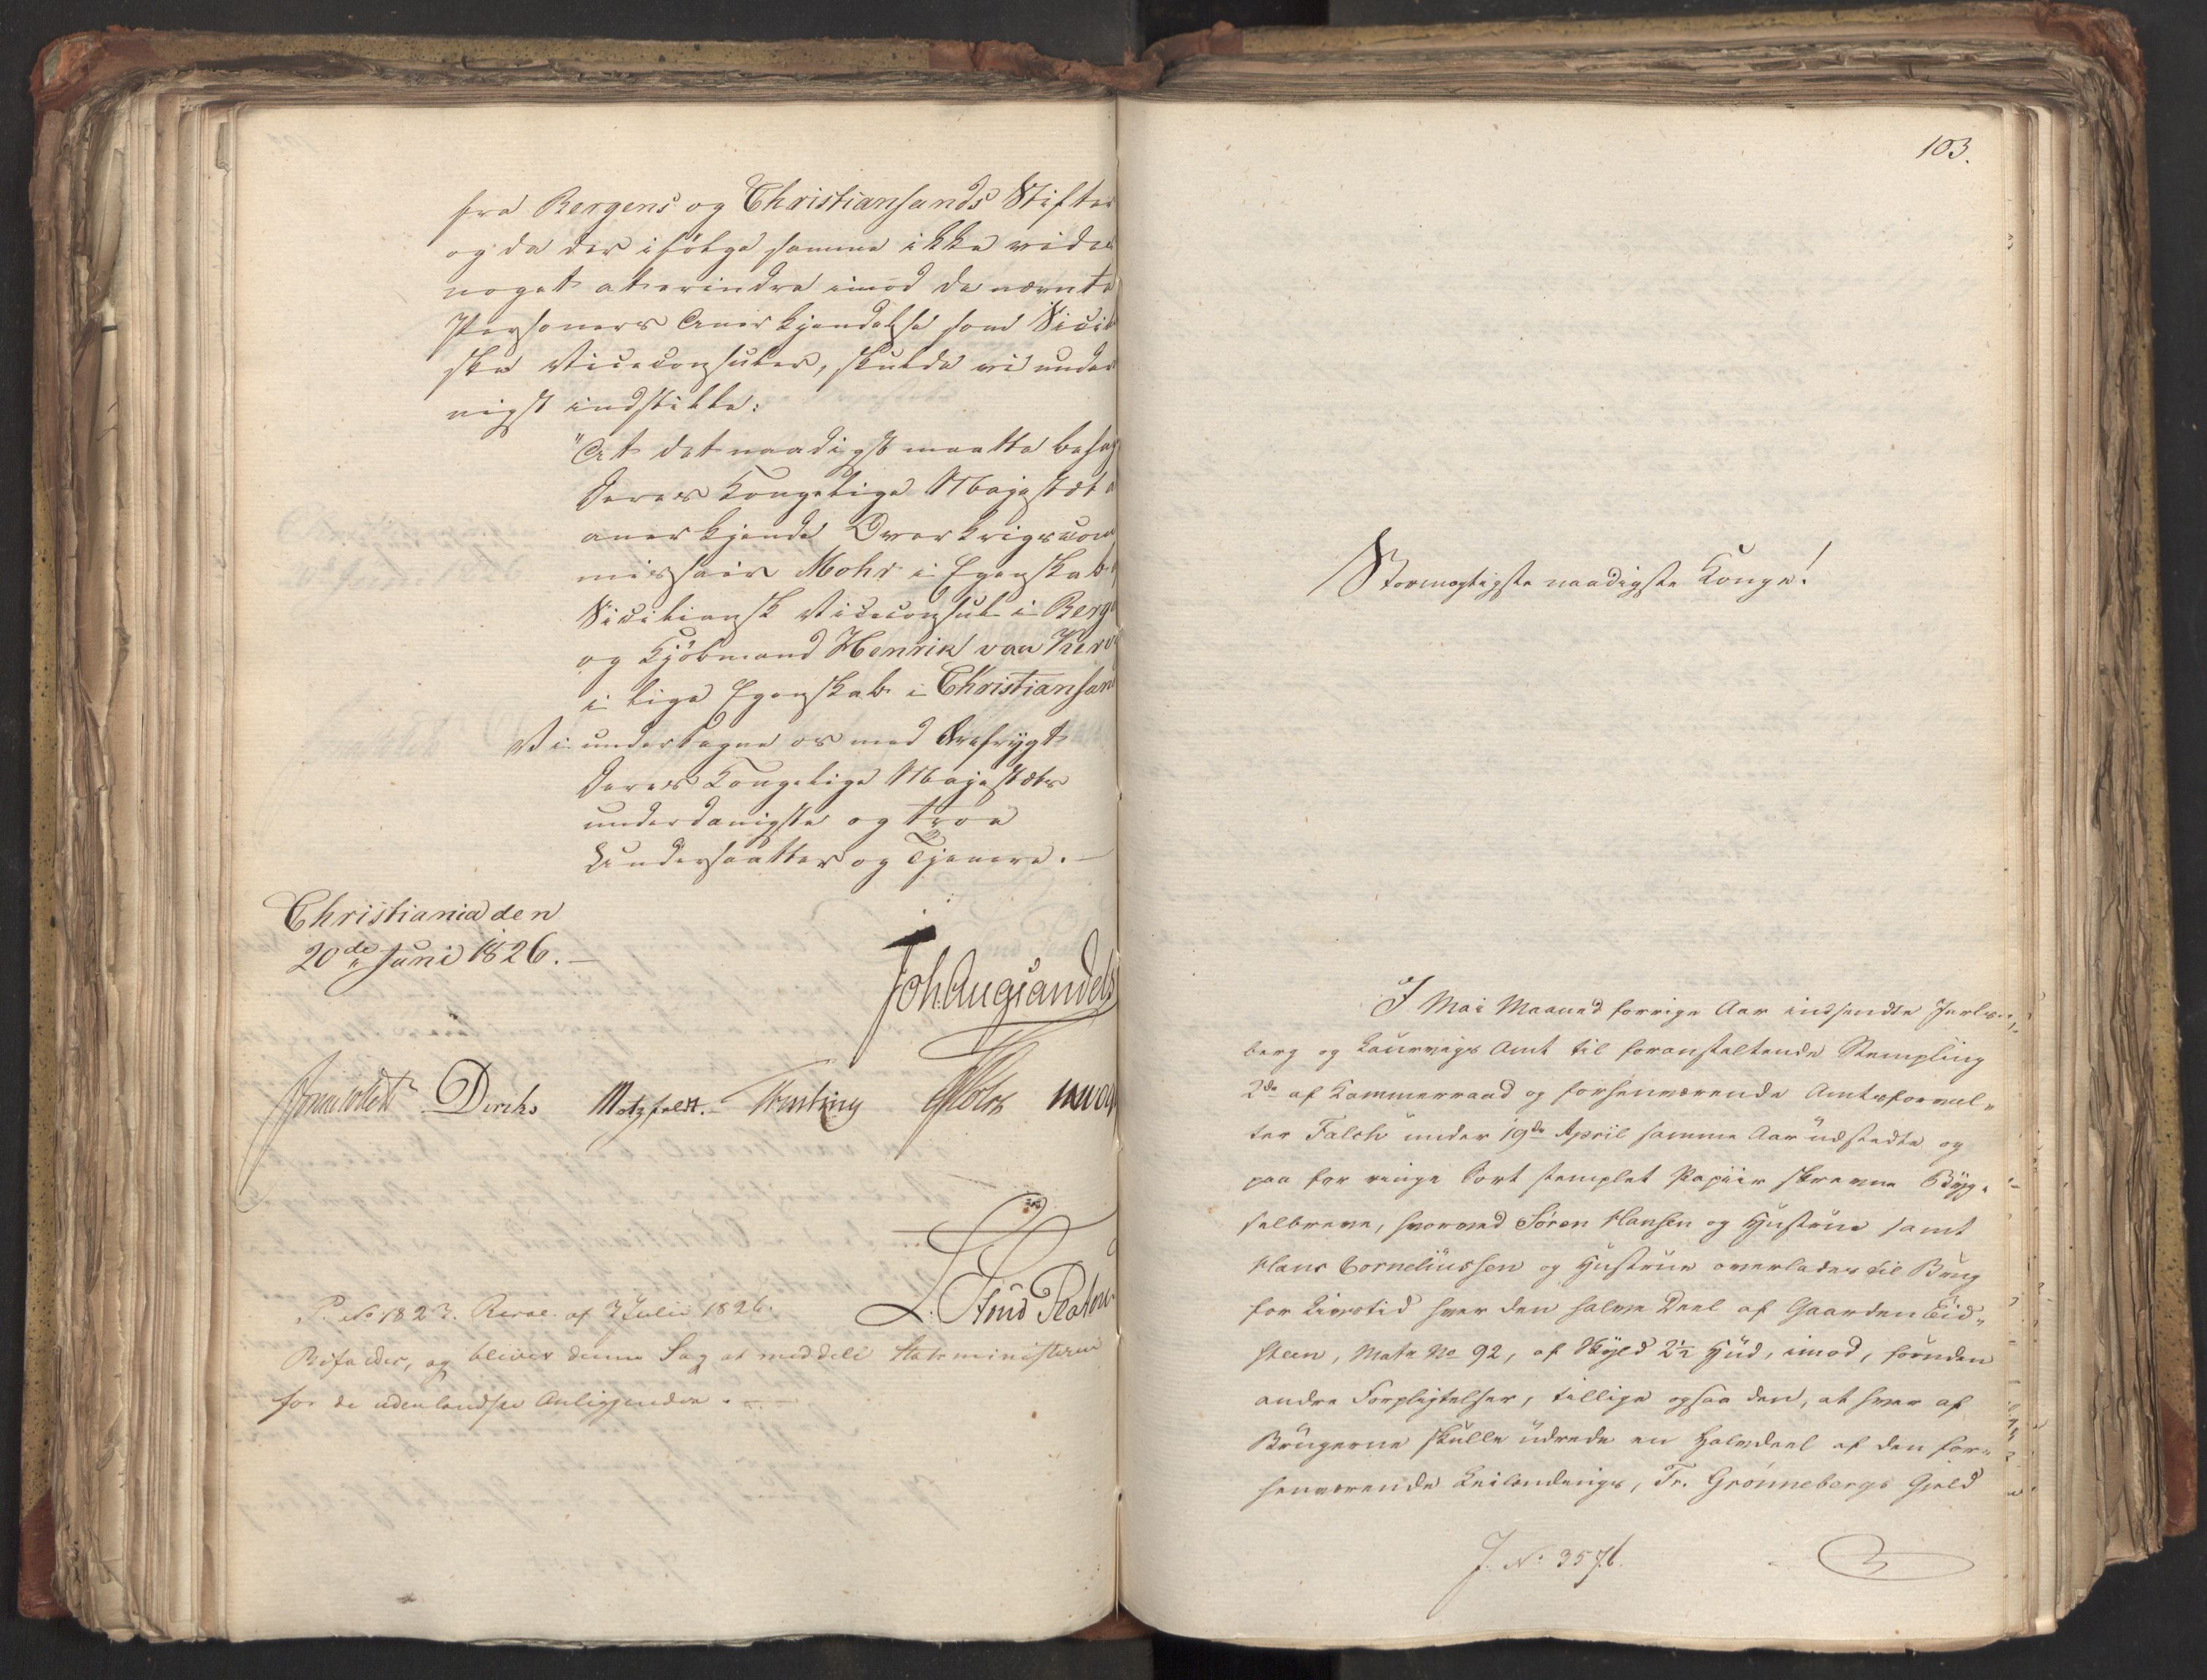 fra Bergens og Christiansands Stifter
og da der ifölge samme ikke vides
noget at erindre imod de nævnte
Personers Anerkjendelse som Sicili
ske Viceconsuler, skulde vi under
nigst indstille:
"At det naadigst maatte behag
Deres Kongelige Majestæt a
anerkjende Overkrigscom
missair Mohr i Egenskab
Siciliansk Viceconsul i Berg
og Kjöbmand Henrik van
i lige Egenskab i Christiansan
Vi undertegne os med Ærefrygt
Deres Kongelige Majestæts
underdanigste og troe
Undersaatter og Tjenere. —
Christiania den
20de Juni 1826. —
Joh. Aug. Sandels
Diriks Motzfeldt. Treschow Holst
L.
P. No 1823. Resol. af 7 Julii 1826.
Bifaldes, og bliver denne Sag at meddele Statsministeren
for de udenlandske Anliggender. —
103.
Stormægtigste naadigste Konge!
I Mai Maaned forrige Aar indsendte Jarls-
berg og Laurvigs Amt til foranstaltende Stempling
2de af Kammerraad og forhenværende Amtsforval-
ter Falch under 19de April samme Aar üdstedte og
paa for ringe Sort stemplet Papiir skrevne Byg-
selbreve, hvorved Sören Hansen og Hüstrüe samt
Hans Corneliüssen og Hüstrüe overlades til Brüg
for Livstid hver den halve Deel af Gaarden Eid-
steen, Matr No 92, af Skyld 2½ Hüd, imod, foruden
andre Forpligtelser, tillige ogsaa den, at hver af
Brügerne skulle üdrede en Halvdeel af den for-
henværende Leilændings, Fr. Grönnebergs Gjeld
J. No 3576.